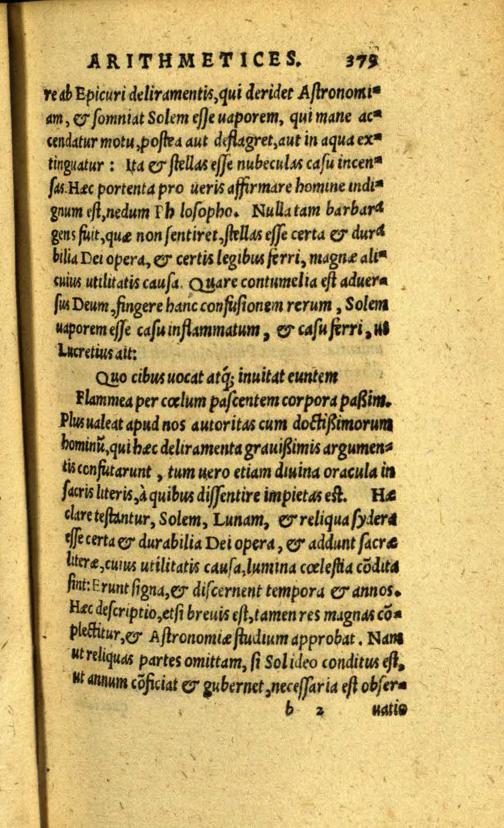 ARITHMETICES. 379
re ab Epicuri deliramentis, qui deridet Aſtronomi-
am, & ſomniat Solem eſſe uaporem, qui mane ac-
cendatur motu, poſtea aut deflagret, aut in aqua ex-
tinguatur : Ita & ſtellas eſſe nubeculas caſu incen-
ſas. Hæc portenta pro ueris affirmare homine indi-
gnum eſt, nedum Ph loſopho. Nulla tam barbara
gens fuit, quæ non ſentiret, ſtellas eſſe certa & dura
bilia Dei opera, & certis legibus ferri, magnæ ali-
cuius utilitatis cauſa. Quare contumelia eſt aduer-
ſus Deum, fingere hanc confuſionem rerum, Solem
uaporem eſſe caſu inflammatum, & caſu ferri, ut
Lucretius ait:
Quo cibus uocat atq́; inuitat euntem
Flammea per cœlum paſcentem corpora paßim.
Plus ualeat apud nos autoritas cum doctißimorum
hominũ, qui hæc deliramenta grauißimis argumen-
tis confutarunt, tum uero etiam diuina oracula in
ſacris literis, à quibus diſſentire impietas eſt. Hæ
clare teſtantur, Solem, Lunam, & reliqua ſydera
eſſe certa & durabilia Dei opera, & addunt ſacræ
literæ, cuius utilitatis cauſa, lumina cœleſtia cõdita
ſint: Erunt ſigna, & diſcernent tempora & annos.
Hæc deſcriptio, etſi breuis eſt, tamen res magnas cõ-
plectitur, & Aſtronomiæ ſtudium approbat. Nam
ut reliquas partes omittam, ſi Sol ideo conditus eſt,
ut annum cõficiat & gubernet, neceſſaria eſt obſer-
b 2 uatio